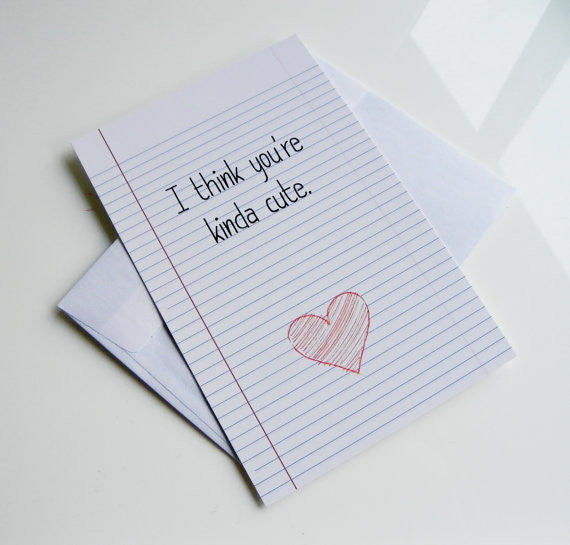 I think you're
kinda cute.